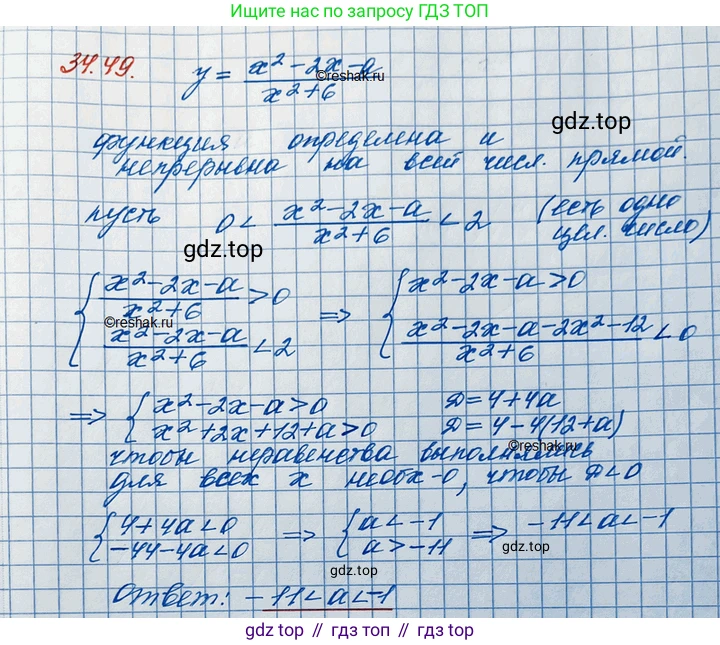 Ищите нас по запросу ГДЗ ТОП
34.49. y = x² - 2x - a / x² + 6
©reshak.ru
gdz.top
функция определена и
непрерывна на всей числ. прямой.
пусть 0 < x² - 2x - a / x² + 6 < 2 (есть одно
цел. число)
gdz.top
{ x² - 2x - a / x² + 6 > 0 => { x² - 2x - a > 0
©reshak.ru
x² - 2x - a / x² + 6 < 2 x² - 2x - a - 2x² - 12 / x² + 6 < 0
=> { x² - 2x - a > 0 D = 4 + 4a
x² + 2x + 12 + a > 0 D = 4 - 4(12 + a)
©reshak.ru
чтобы неравенства выполнялись
для всех x необх-о, чтобы D < 0
{ 4 + 4a < 0 => { a < -1 => -11 < a < -1
-44 - 4a < 0 a > -11
gdz.top
gdz.top
Ответ: -11 < a < -1
©reshak.ru
gdz.top // гдз топ // gdz.top